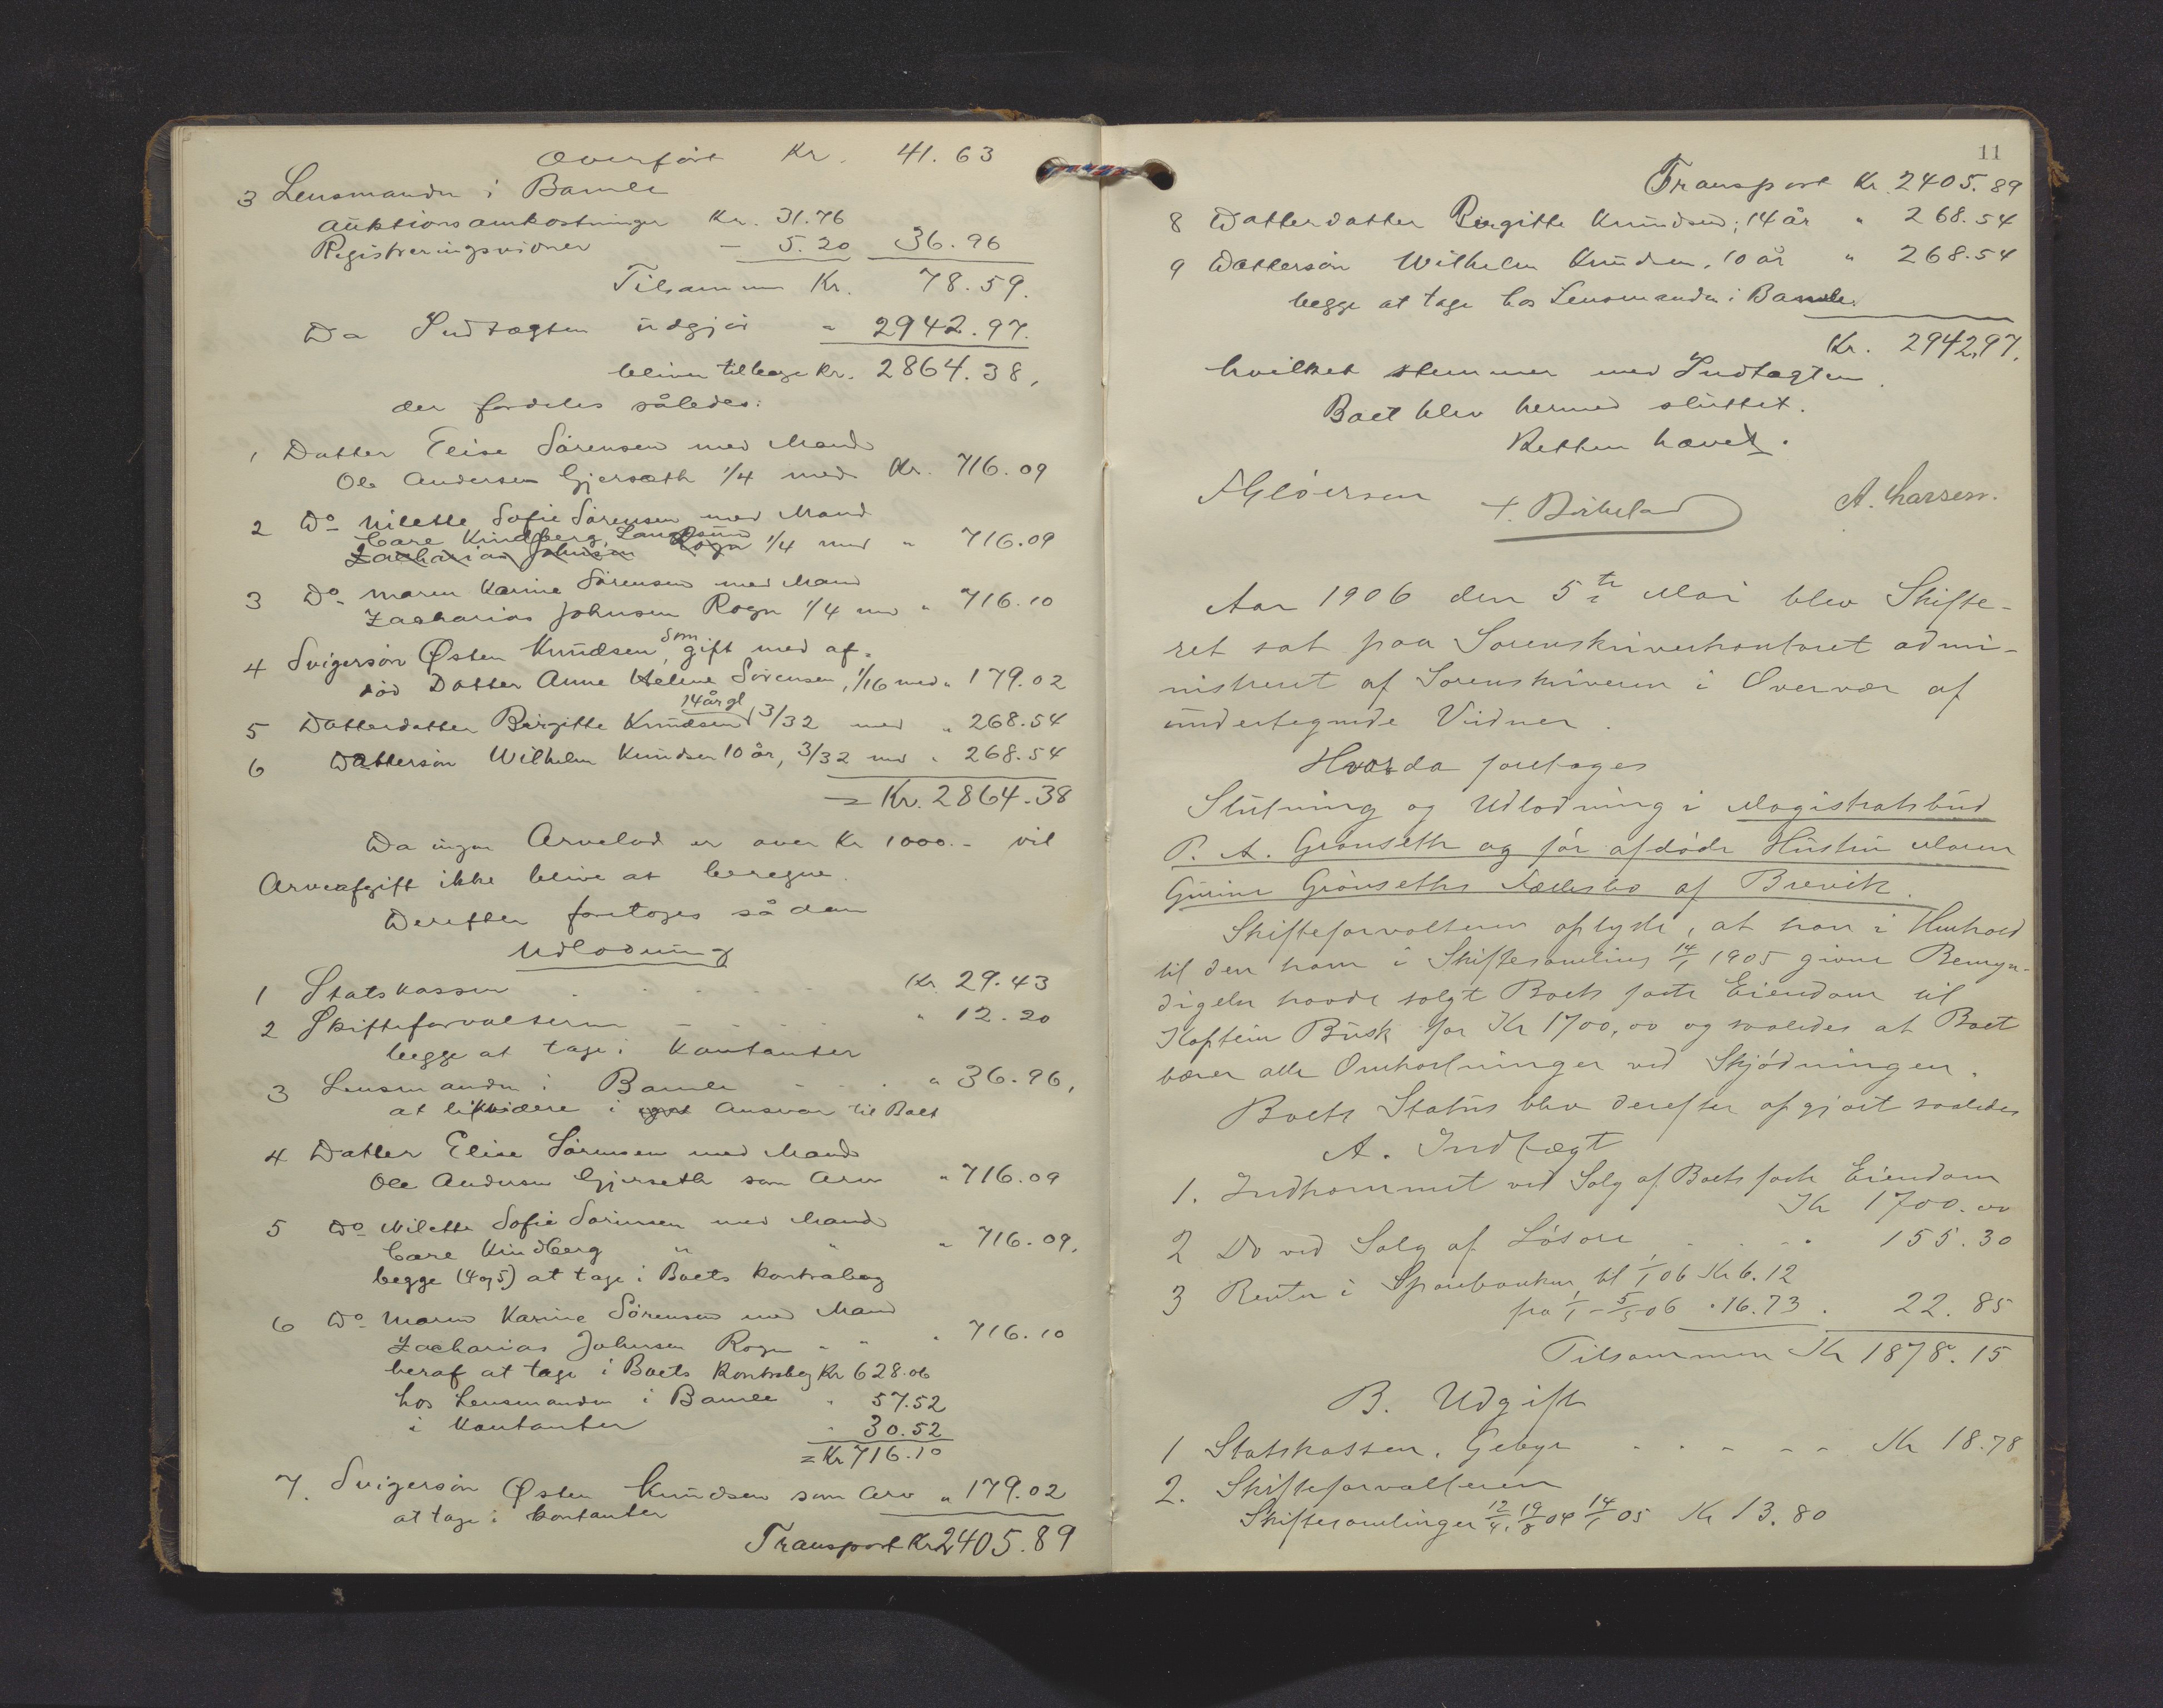 Overført Kr. 41.63
3 Lensmanden i Bamle
Auktionsomkostninger Kr. 31.76
Registreringsvidner — 5.20 36.96
Tilsammen Kr. 78.59.
Da Indtægten udgjør " 2942.97.
bliver tilbage Kr. 2864.38,
der fordeles således:
1 Datter Elise Sörensen med Mand
Ole Andersen Gjerseth 1/4 med Kr. 716.09
2 Do Nilette Sofie Sörensen med Mand
Care Kindberg, Langesund
Zacharias Johnsen Rogn 1/4 med " 716.09
3 Do Maren Karine Sörensen med Mand
Zacharias Johnsen Rogn 1/4 med " 716.10
4 Svigersön Østen Knudsen, som gift med af-
död Datter Anne Helene Sörensen, 1/16 med " 179.02
14 år gl
5 Datterdatter Birgitte Knudsen, 3/32 med " 268.54
6 Dattersön Wilhelm Knudsen 10 år, 3/32 med " 268.54
= Kr. 2864.38
Da ingen Arvelod er over Kr 1000.- vil
Arveafgift ikke blive at beregne.
Derefter foretoges sådan
Udlodning
1 Statskassen Kr. 29.43
2 Skifteforvalteren " 12.20
begge at tage i Kontanter
3 Lensmanden i Bamle " 36.96,
at likvidere i Ansvar til Boet
4 Datter Elise Sörensen med Mand
Ole Andersen Gjerseth som Arv " 716.09
5 Do Nilette Sofie Sörensen med Mand
Care Kindberg " " " 716.09,
begge (4 og 5) at tage i Boets Kontrabog
6 Do Maren Karine Sörensen med Mand
Zacharias Johnsen Rogn " " " 716.10
heraf at tage i Boets Kontrabog Kr 628.06
hos Lensmanden i Bamle " 57.52
i Kontanter " 30.52
= Kr 716.10
7. Svigersön Østen Knudsen som Arv " 179.02
at tage i Kontanter
Transport Kr 2405.89
11
Transport Kr. 2405.89
8 Datterdatter Birgitte Knudsen, 14 år " 268.54
9 Dattersön Wilhelm Knudsen, 10 år " 268.54
begge at tage hos Lensmanden i Bamle.
Kr. 2942,97.
hvilket stemmer med Indtægten.
Boet blev hermed sluttet.
Retten hævet.
A. Larsen.
Aar 1906 den 5te Mai blev Skifte-
ret sat paa Sorenskriverkontoret admi-
nistreret af Sorenskriveren i Overvær af
undertegnede Vidner.
Hvorda foretages
Slutning og Udlodning i Magistratsbud
P. A. Grønseth og før afdøde Hustru Maren
Gurine Grønseths Fællesbo af Brevik.
Skifteforvalteren oplyste, at han i Henhold
til den ham i Skiftesamling 14/1 1905 givne Bemyn-
digelse havde solgt Boets faste Eiendom til
Kaptein Busk for Kr 1700,00 og saaledes at Boet
bærer alle Omkostninger ved Skjødningen.
Boets Status blev derefter opgjort saaledes
A. Indtægt
1. Indkommet ved Salg af Boets faste Eiendom
Kr 1700.00
2 Do ved Salg af Løsøre 155.30
3 Renter i Sparebanken til 1/1 06 Kr 6.12
fra 1/1 - 5/5 06 " 16.73 . 22.85
Tilsammen Kr 1878.15
B. Udgift
1 Statskassen, Gebyr Kr 18.78
2. Skifteforvalteren
Skiftesamlinger 12/4, 19/8 04 14/1 05 Kr 13.80